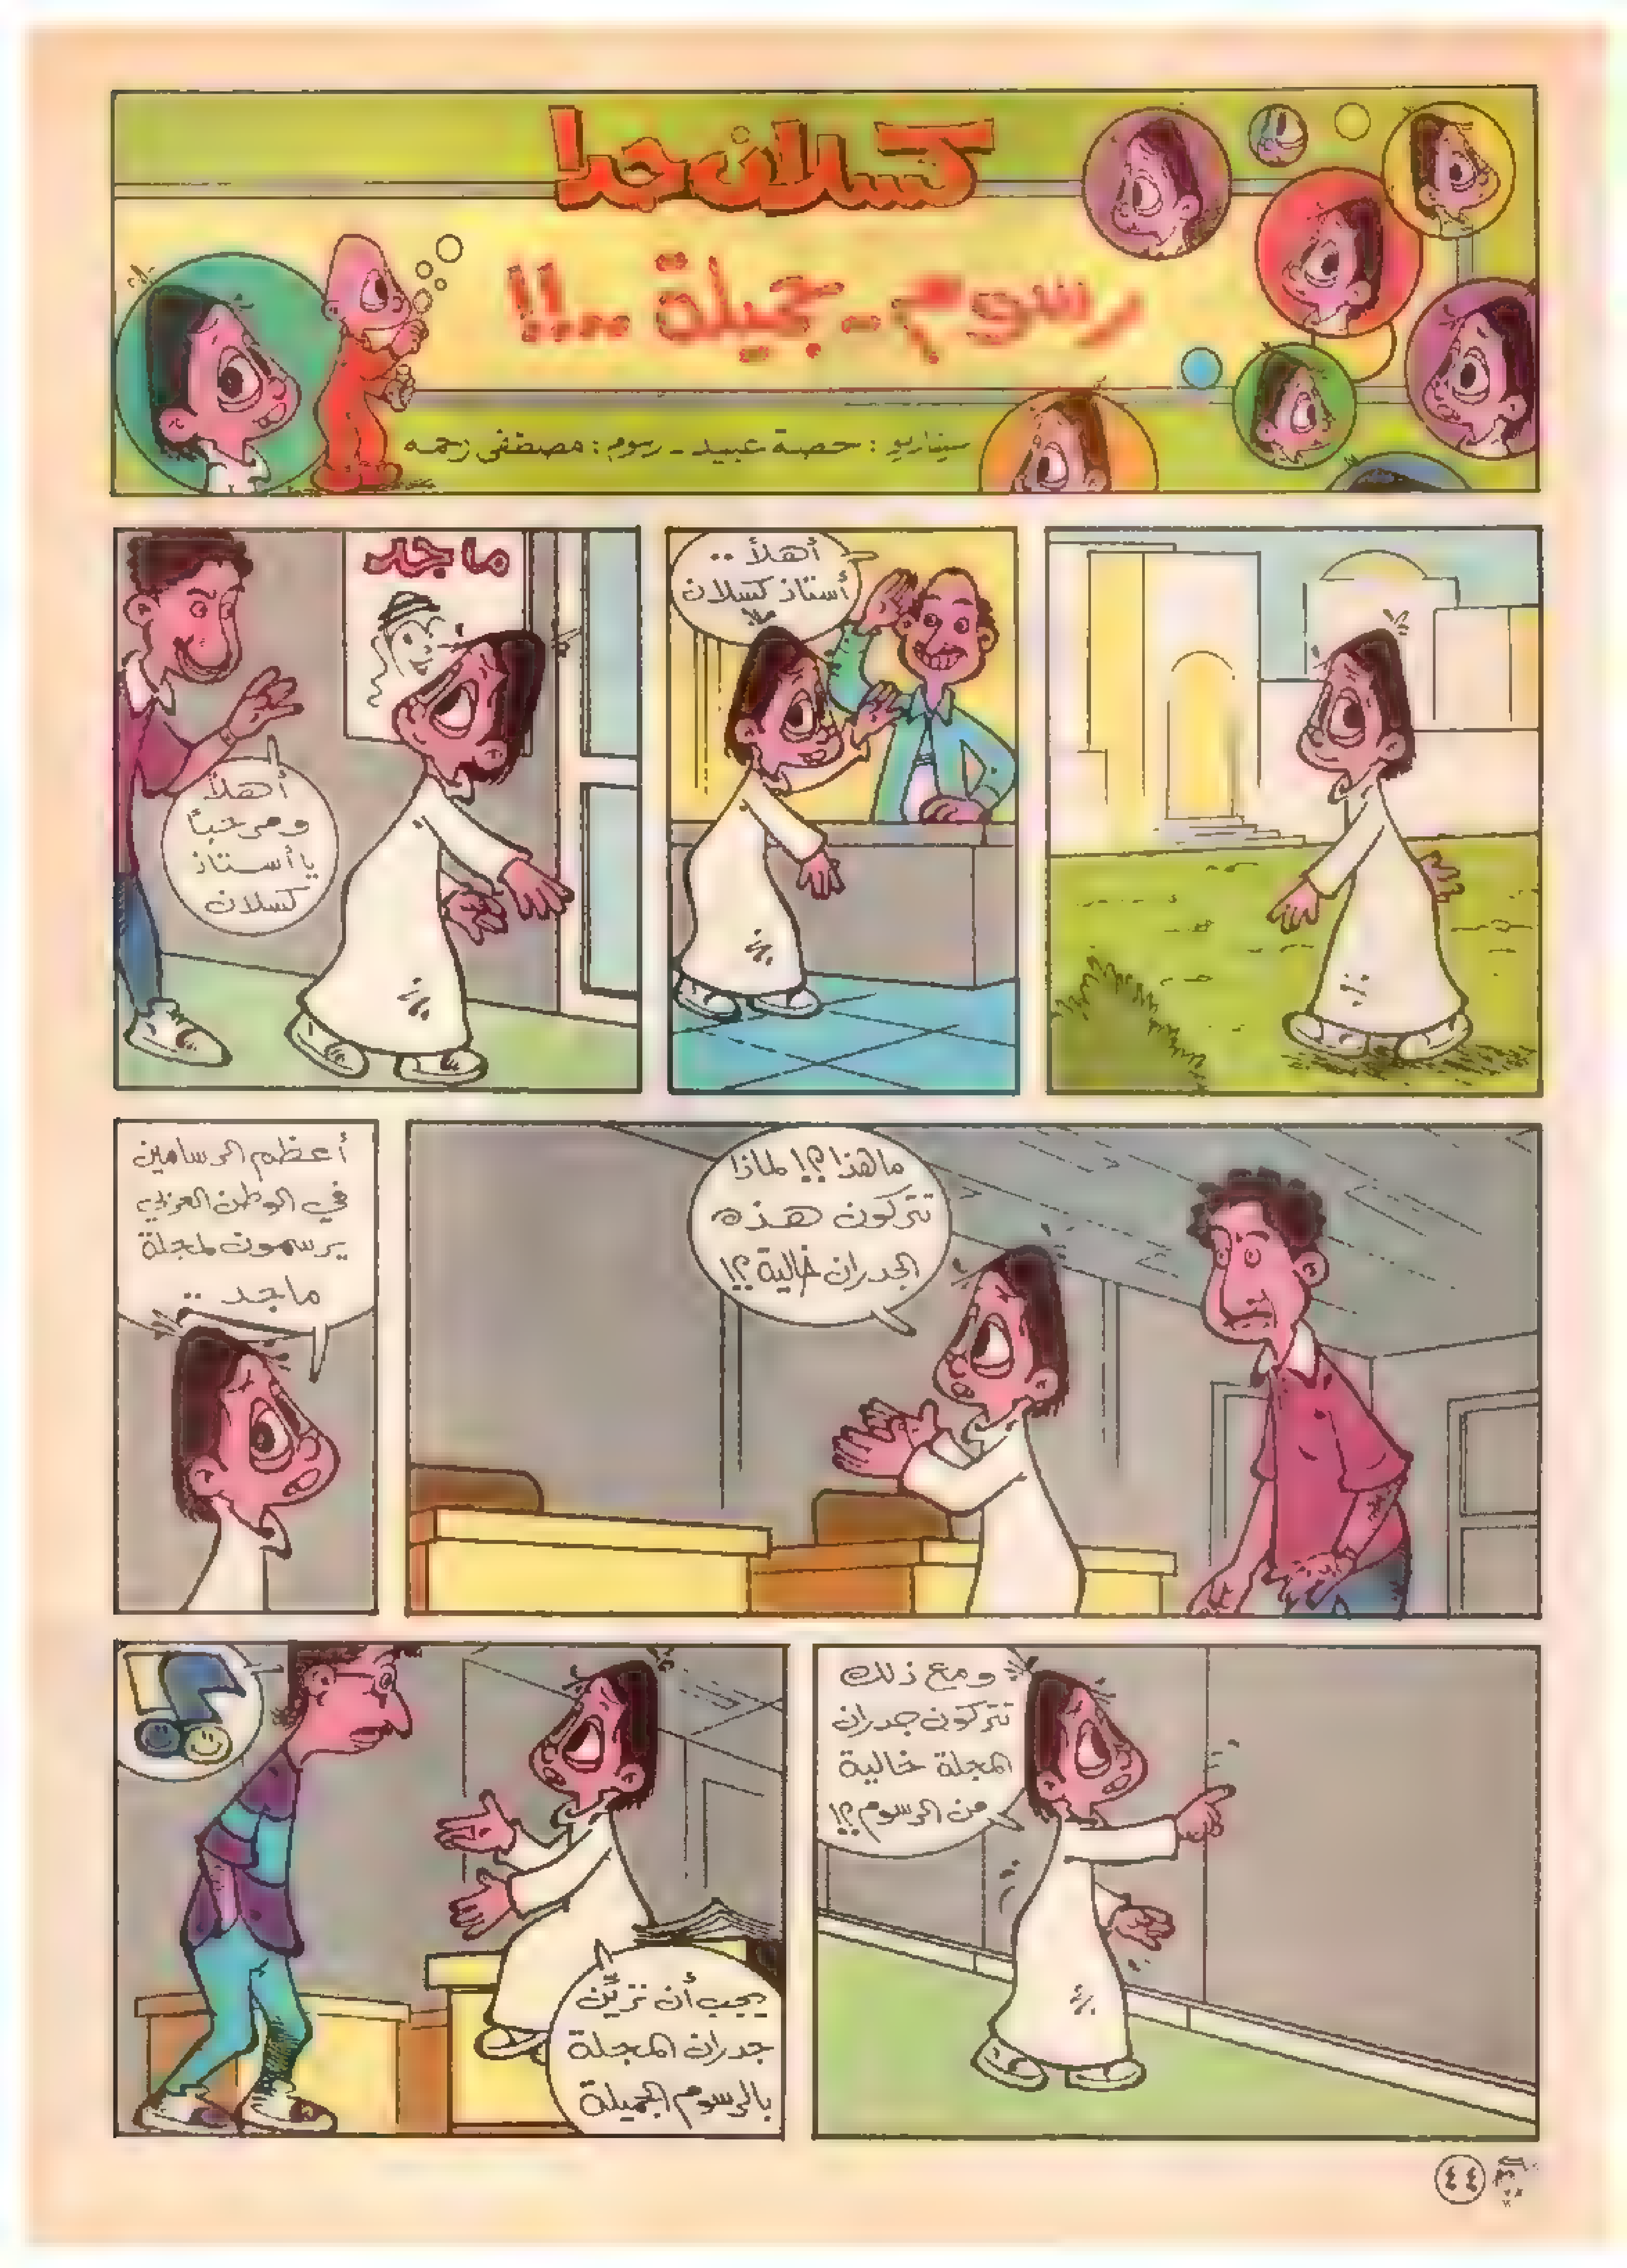 كسلان جدا
رسوم - جميلة ..!!
سيناريو : حصة عبيد - رسوم : مصطفى رحمه
أهلاً ..
أستاذ كسلان
ماجد
أهلاً
ومرحباً
يا أستاذ
كسلان
ما هذا؟! لماذا
تتركون هذه
الجدران خالية؟!
أعظم الرسامين
في الوطن العربي
يرسمون لمجلة
ماجد ..
ومع ذلك
تتركون جدران
المجلة خالية
من الرسوم؟!
يجب أن تزيّن
جدران المجلة
بالرسوم الجميلة
٤٤